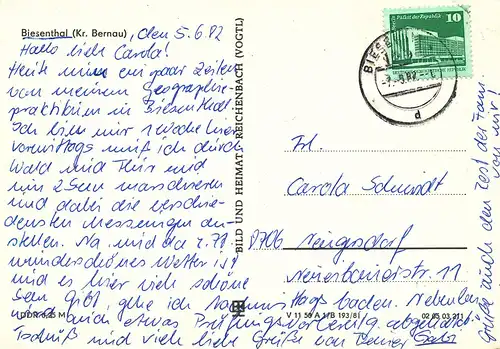 Biesenthal (Kr. Bernau), den 5.6.82
Hallo liebe Carola!
Heute mal ein paar Zeilen
von meinem Geographie-
praktikum in Biesenthal.
Ich bin nur 1 Woche hier.
Vormittags muß ich durch
Wald und Flur und
um 2 Seen marschieren
und dabei die verschie-
densten Messungen an-
stellen. Na und da z.Zt.
wunderschönes Wetter ist
und es hier viele schöne
Seen gibt, gehe ich Nachmittags baden. Nebenbei
wird auch etwas Prüfungsvorbereitung
Tschüß und viele liebe Grüße von Deiner Gabi
Grüße auch den Rest der Fam.
von mir!
Frl.
Carola Schmidt
8706 Neugersdorf
11
BILD UND HEIMAT REICHENBACH (VOGTL)
V 11 50 A 1/B 193/81
02 05 03 211
DDR M
Palast der Republik
10
d